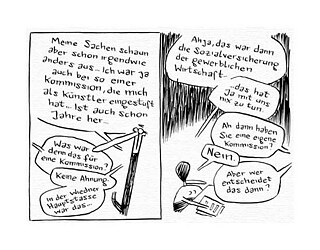 Meine Sachen schaun
aber schon irgendwie
anders aus... Ich war ja
auch bei so einer
Kommission, die mich
als Künstler eingestuft
hat... Ist auch schon
Jahre her...
Was war
denn das für
eine Kommission?
Keine Ahnung.
in der whedner
Hauptstasse
war das...
Ahja, das war dann
die Sozialversicherung
der gewerblichen
Wirtschaft...
...das hat
Ja mit uns
nix zu tun.
Ah dann haben
Sie eine eigene
Kommission?
Nein.
Aber wer
entscheidet
das dann?
??